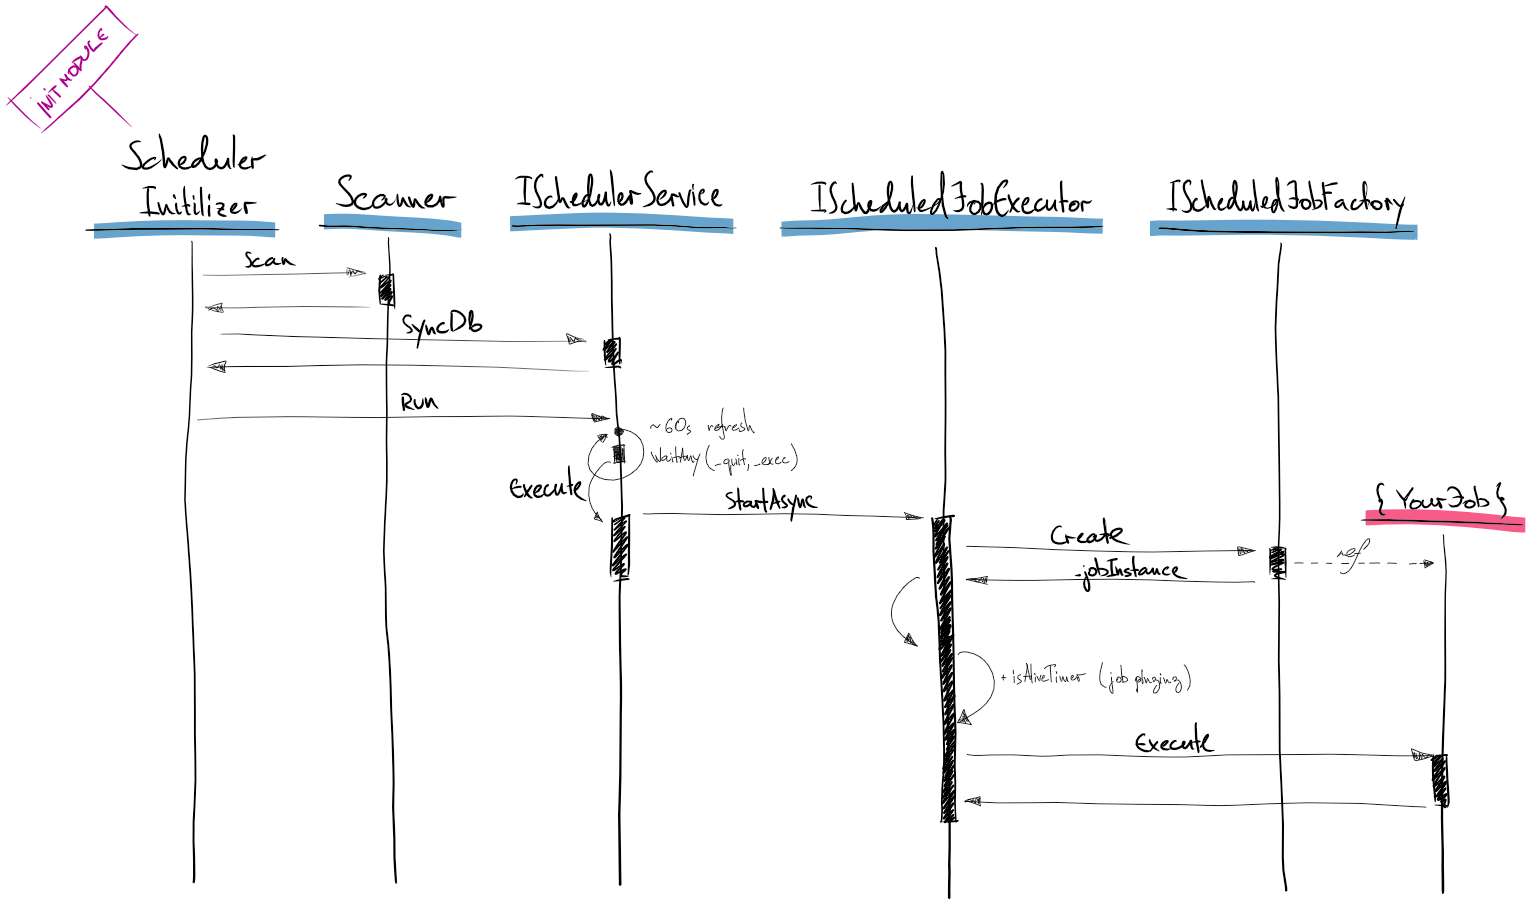 INIT MODULE
Scheduler
Initilizer
Scanner
ISchedulerService
IScheduledJobExecutor
IScheduledJobFactory
Scan
SyncDb
Run
~60s refresh
WaitAny(_quit,_exec)
Execute
StartAsync
{YourJob}
Create
ref
.jobInstance
+ isAliveTimer (job pinging)
Execute